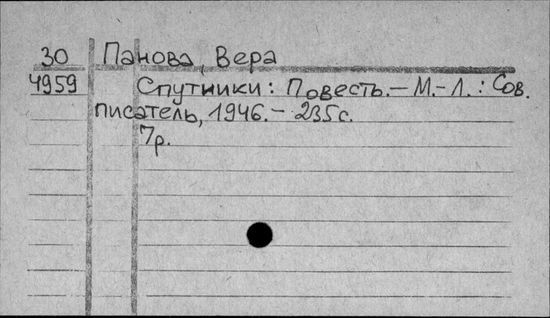 30 Панова, Вера
4959 Спутники: Повесть.— М.-Л.: Сов.
писатель, 1946.— 235с.
7р.